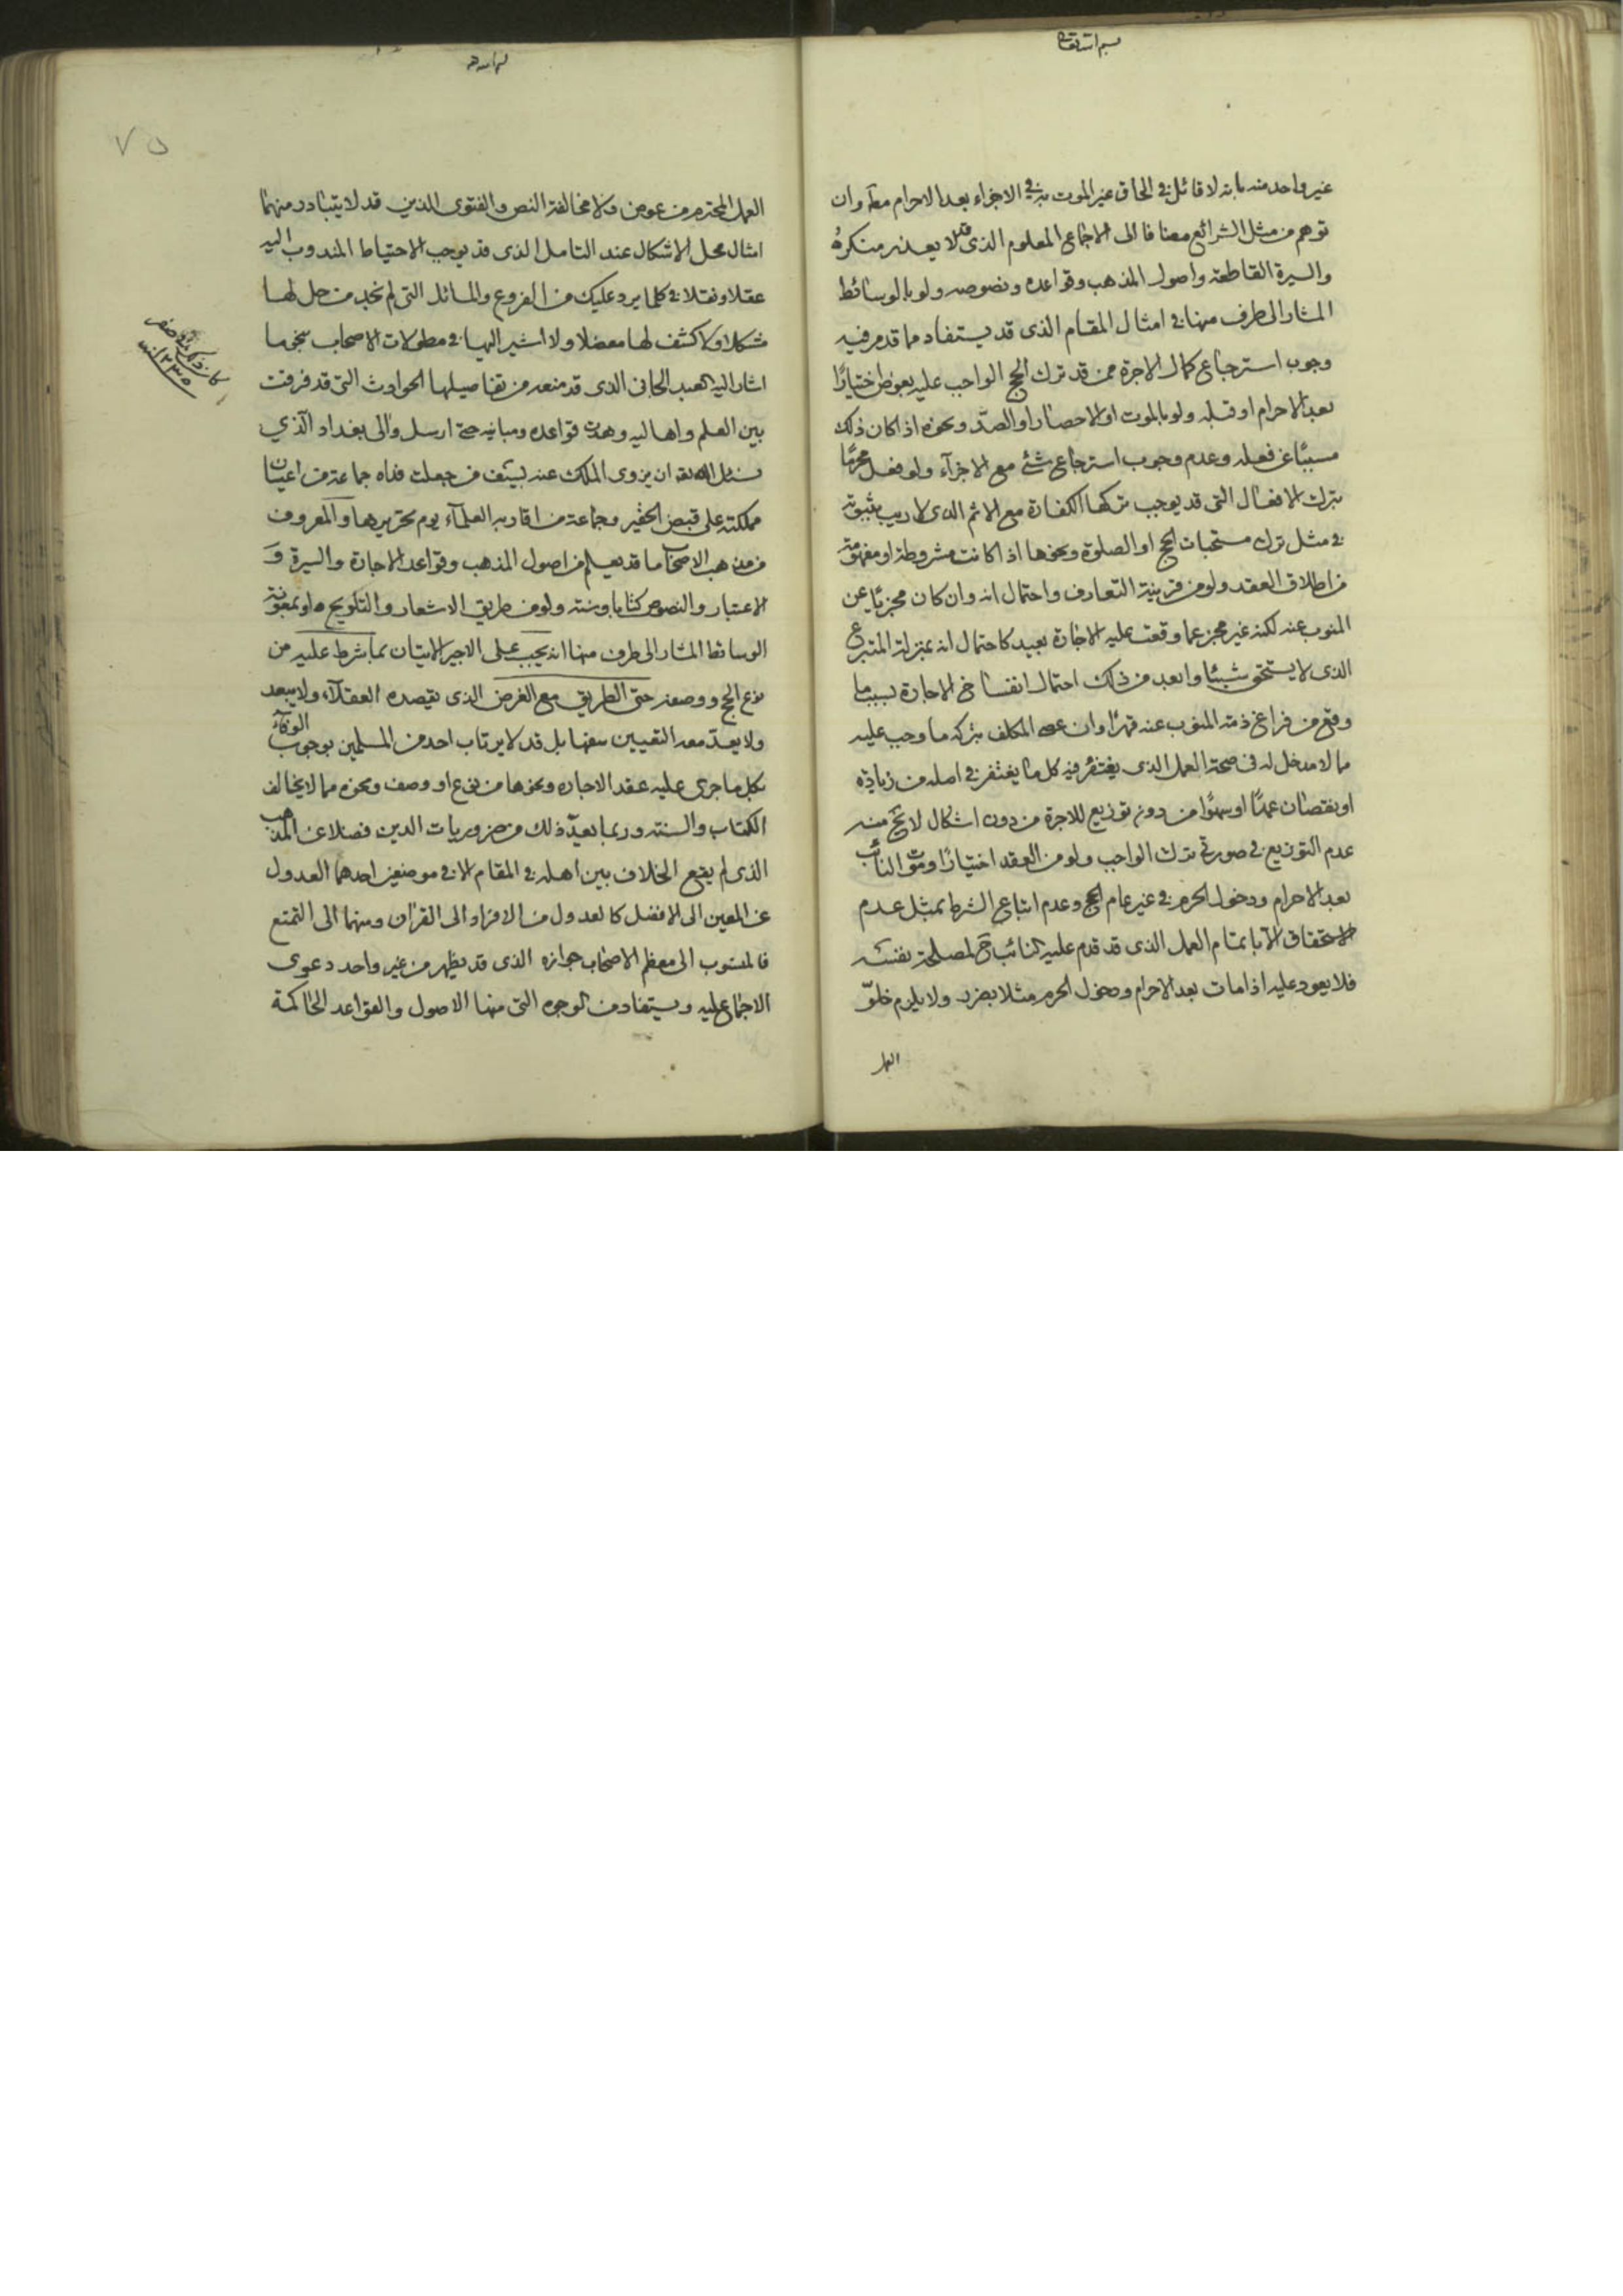 بسم الله تعالى
غير واحد منه بانه لا قائل في الحاق غير الموت به في الاجزاء بعد الاحرام معه وان
توهم من مثل الشرائع مضافا الى الاجماع المعلوم الذى قد لا يعذر منكره
والسيرة القاطعة واصول المذهب وقواعده ونصوصه ولو بالوسائط
المشار الى طرف منها في امثال المقام الذى قد يستفاد مما قدم فيه
وجوب استرجاع كمال الاجرة ممن قد ترك الحج الواجب عليه بعوض اختيارًا
بعد الاحرام او قبله ولو بالموت او الاحصار او الصدّ ونحوه اذا كان ذلك
مسببًا عن فعله وعدم وجوب استرجاع شئ مع الاجزآء ولو فعل محرمًا
بترك الافعال التى قد يوجب تركها الكفارة مع الاثم الذى لا ريب بثبوته
في مثل ترك مستحبات الحج او الصلوة ونحوها اذا كانت مشروطة او مفهومة
من اطلاق العقد ولو من قرينة التعارف واحتمال انه وان كان مجزيًا عن
المنوب عنه لكنه غير مجز عما وقعت عليه الاجارة بعيد كاحتمال انه بمنزلة المتبرع
الذى لا يستحق شيئًا وابعد من ذلك احتمال انفساخ الاجارة بسبب ما
وقع من فراغ ذمة المنوب عنه قهرًا وان عصى المكلف بتركه ما وجب عليه
مما لا مدخل له في صحة العمل الذى يغتفر فيه كل ما يغتفر في اصله من زيادة
او نقصان عمدًا او سهوًا من دون توزيع للاجرة من دون اشكال لائح منه
عدم التوزيع في صورتى ترك الواجب ولو من العقد اختيارًا وموت النائب
بعد الاحرام ودخول الحرم في غير عام الحج وعدم اتباع الشرط بمثل عدم
الاستحقاق الا باتمام العمل الذى قد قدم عليه النائب ح لمصلحة نفسه
فلا يعود عليه اذا مات بعد الاحرام ودخول الحرم مثلا بضرر ولا يلزم خلوّ
العمل
٧٥
العمل المحترم من عوض ولا مخالفة النص والفتوى الذين قد لا يتبادر منهما
امثال محل الاشكال عند التامل الذى قد يوجب الاحتياط المندوب اليه
عقلا ونقلا في كلما يرد عليك من الفروع والمسائل التى لم نجد من حل لها
مشكلا ولا كشف لها معضلا ولا اشير اليها في مطولات الاصحاب بنحو ما
اشار اليه العبد الجانى الذى قد منعه من تفاصيلها الحوادث التى قد فرقت
بين العلم واهاليه وهدت قواعده ومبانيه حتى ارسل والى بغداد الذي
نسئل الله ان يزوى الملك عنه بسيف من جعلت فداه جماعة من اعيان
مملكته على قبض الحقير وجماعة من اقاربه العلمآء يوم تحريرها والمعروف
من مذهب الاصحاب ما قد يعلم من اصول المذهب وقواعد الاجارة والسيرة و
الاعتبار والنصوص كتابا وسنة ولو من طريق الاشعار والتلويح ولو بمعونة
الوسائط المشار الى طرف منها انه يجب على الاجير الاتيان بما شرط عليه من
نوع الحج ووصفه حتى الطريق مع الغرض الذى يقصده العقلآء ولا يبعد
ولا يعدّ معه التعيين سفها بل قد لا يرتاب احد من المسلمين بوجوب الوفآء
بكل ما جرى عليه عقد الاجاره ونحوها من نوع او وصف ونحوه مما لا يخالف
الكتاب والسنة وربما يعدّ ذلك من ضروريات الدين فضلا عن المذهب
الذى لم يقع الخلاف بين اهله في المقام الا في موضعين احدهما العدول
عن المعين الى الافضل كالعدول من الافراد الى القران ومنهما الى التمتع
فالمنسوب الى معظم الاصحاب جوازه الذى قد يظهر من غير واحد دعوى
الاجماع عليه ويستفاد من الوجوه التى منها الاصول والقواعد الحاكمة